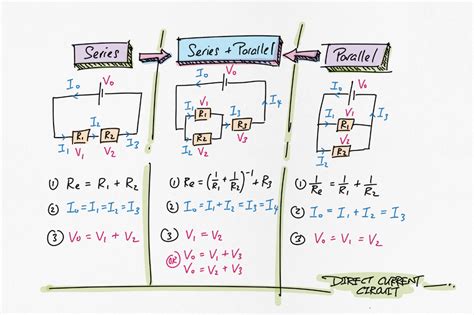 Series
Series + Parallel
Parallel
I₀ V₀
I₂
R₁ R₂
I₁ V₁ V₂ I₃
I₀ V₀
V₁ I₄
I₁ R₁
I₂ R₂ R₃ I₃
V₂ V₃
I₀ V₀
I₁ R₁ I₃
V₁
I₂ R₂
V₂
① Re = R₁ + R₂
② I₀ = I₁ = I₂ = I₃
③ V₀ = V₁ + V₂
① Re = (1/R₁ + 1/R₂)⁻¹ + R₃
② I₀ = I₁ + I₂ = I₃ = I₄
③ V₁ = V₂
OR V₀ = V₁ + V₃
V₀ = V₂ + V₃
① 1/Re = 1/R₁ + 1/R₂
② I₀ = I₁ + I₂ = I₃
③ V₀ = V₁ = V₂
DIRECT CURRENT
CIRCUIT